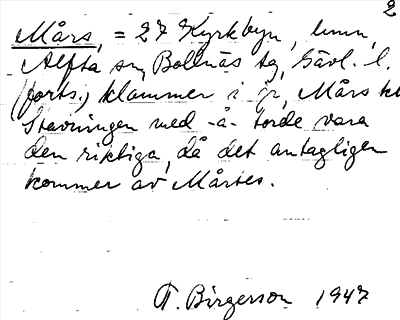 2
Mårs, = 27 Kyrkbyn, hmn,
Alfta sn, Bollnäs tg, Gävl. l.
(forts.) klammer i jr, Mårs kl
Stavningen med -å- torde vara
den riktiga, då det antagligen
kommer av Mårtes.
T. Birgerson 1947